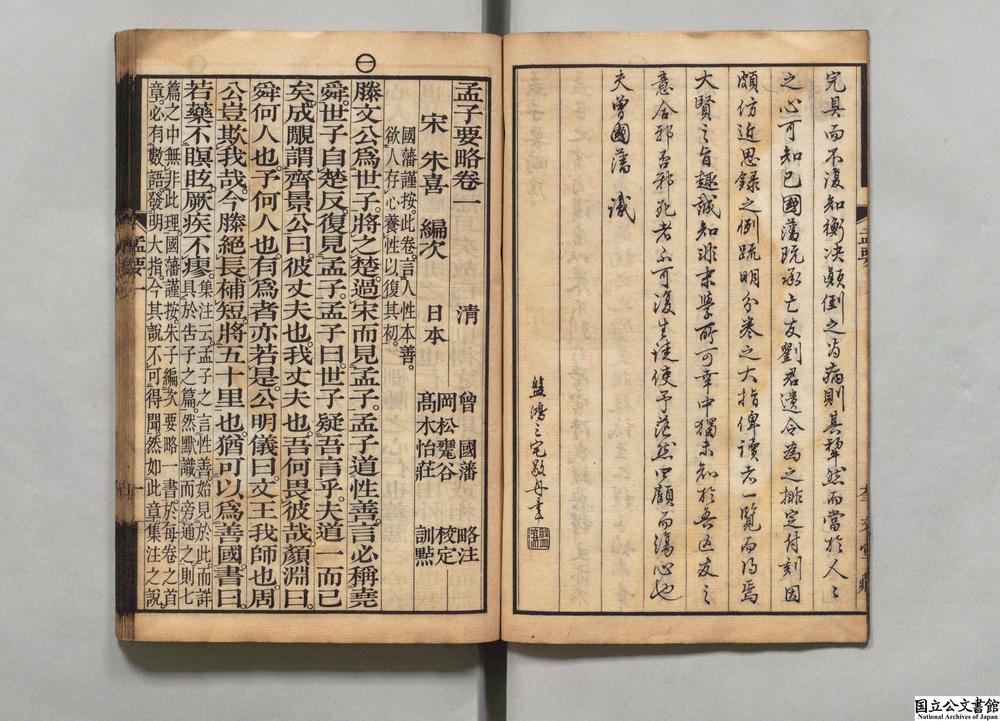 完具而不復知衡决顛倒之為病則其犂然而當於人人
之心可知已國藩既承亡友劉君遺令為之排定付刻因
頗仿近思錄之例疏明分卷之大指俾讀者一覽而得焉
大賢之旨趣誠知非末學所可幸中獨未知於吾亡友之
意合邪否邪死者不可復生徒使予茫然四顧而傷心也
夫曾國藩識
孟子要略卷一
宋 朱熹 編次
清 曾國藩 略注
日本 岡松甕谷 校定
髙木怡莊 訓點
國藩謹按。此卷。言人性本善。
欲人存心養性。以復其初。
滕文公爲世子。將之楚。過宋而見孟子。孟子道性善。言必稱堯
舜。世子自楚反。復見孟子。孟子曰。世子疑吾言乎。夫道一而已
矣。成覵謂齊景公曰。彼丈夫也。我丈夫也。吾何畏彼哉。顏淵曰。
舜何人也。予何人也。有爲者亦若是。公明儀曰。文王我師也。周
公豈欺我哉。今滕絕長補短。將五十里也。猶可以爲善國。書曰。
若藥不瞑眩。厥疾不瘳。
集注云。孟子之言性善。始見於此。而詳
具於告子之篇。然默識而旁通之。則七
篇之中。無非此理。國藩謹按。朱子編次要略一書。於每卷之首
章。必有數語。發明大指。今其說不可得聞。然如此章集注之說。
孟要 一
国立公文書館
National Archives of Japan